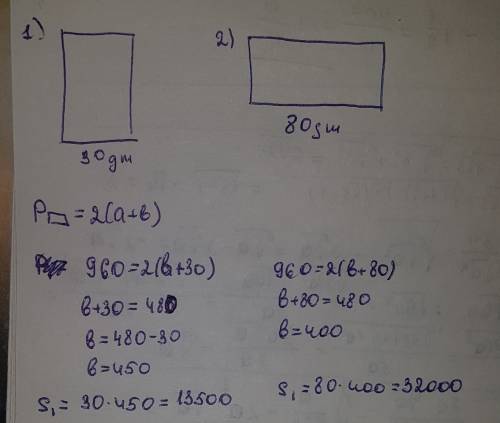 1)
2)
30 дт
80 дт
P▭ = 2(a+b)
960 = 2(b+30)
b+30 = 480
b = 480-30
b = 450
S₁ = 30·450 = 13500
960 = 2(b+80)
b+80 = 480
b = 400
S₁ = 80·400 = 32000